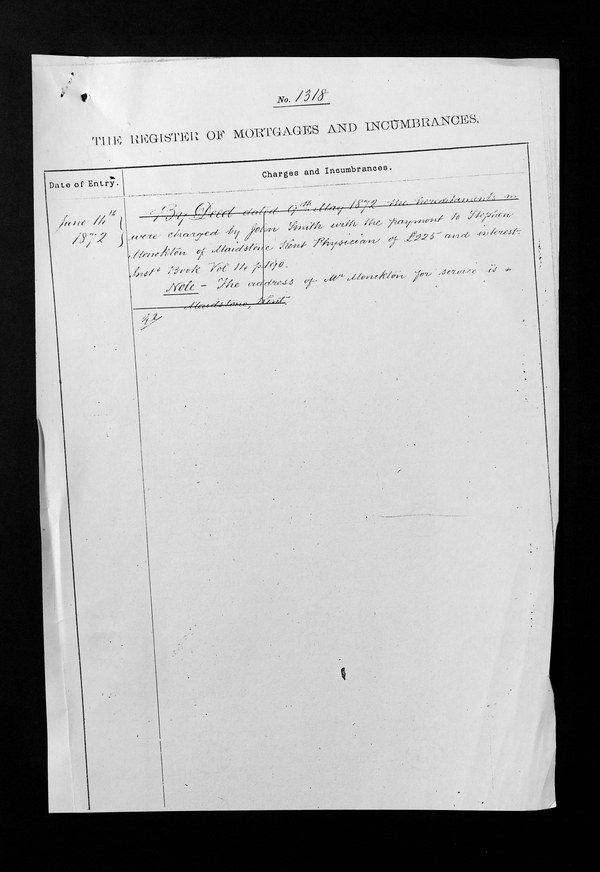 No. 1318
THE REGISTER OF MORTGAGES AND INCUMBRANCES.
Date of Entry.
Charges and Incumbrances.
June 14th
1872
By Deed dated 9th May 1872 the hereditaments in
were charged by John Smith with the payment to Stephen
Monckton of Maidstone Kent Physician of £225 and interest.
Inst. Book Vol 14 p.
Note - The address of Mr Monckton for service is
Maidstone, Kent